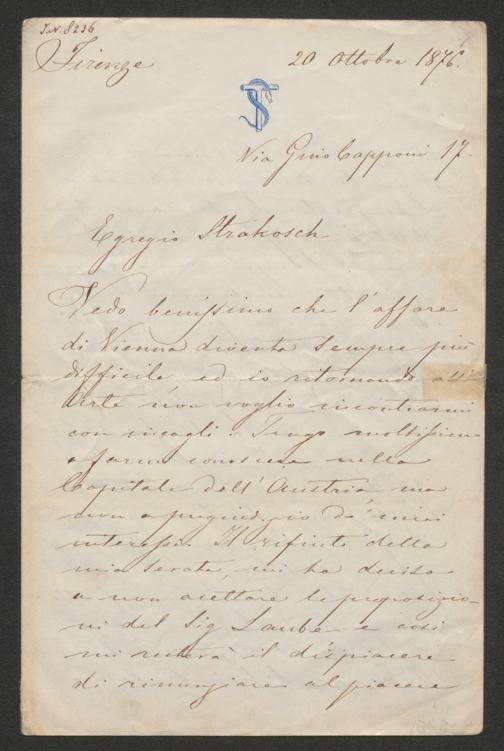 I.N. 8236
Firenze 20 Ottobre 1876.
TS
Via Gino Capponi 17.
Egregio Strakosch
Vedo benissimo che l'affare
di Vienna diventa sempre più
difficile ed io ritornando all'
Arte non voglio incontrarmi
con incagli. Tengo moltissimo
a farmi conoscere nella
Capitale dell'Austria ma
non a pregiudizio de' miei
interessi. Il rifiuto della
mia serata, mi ha decisa
a non acettare le proposizio-
ni del Sig Laube e così
mi resterà il dispiacere
di rinunziare al piacere